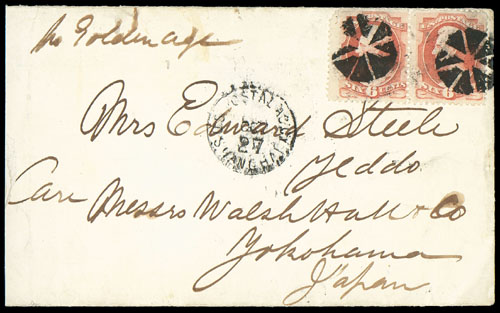 pr Golden age
SIX CENTS
Mrs Edward Steele
Yeddo
Care Messrs Walsh Hall & Co
Yokohama
Japan
POSTAL AG
27
SHANGHAI